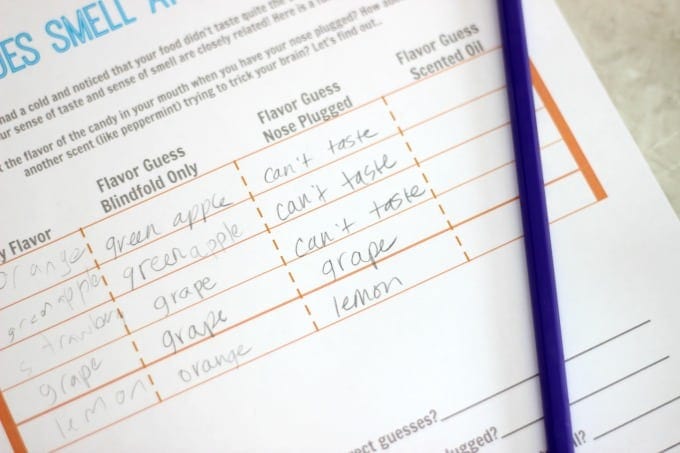 OES SMELL A
had a cold and noticed that your food didn't taste quite the
ur sense of taste and sense of smell are closely related! Here is a
the flavor of the candy in your mouth when you have your nose plugged? How
another scent (like peppermint) trying to trick your brain? Let's find out...
y Flavor Flavor Guess Blindfold Only Flavor Guess Nose Plugged Flavor Guess Scented Oil
orange green apple can't taste
green apple green apple can't taste
strawberry grape can't taste
grape grape grape
lemon orange lemon
ect guesses?
ugged?
l?